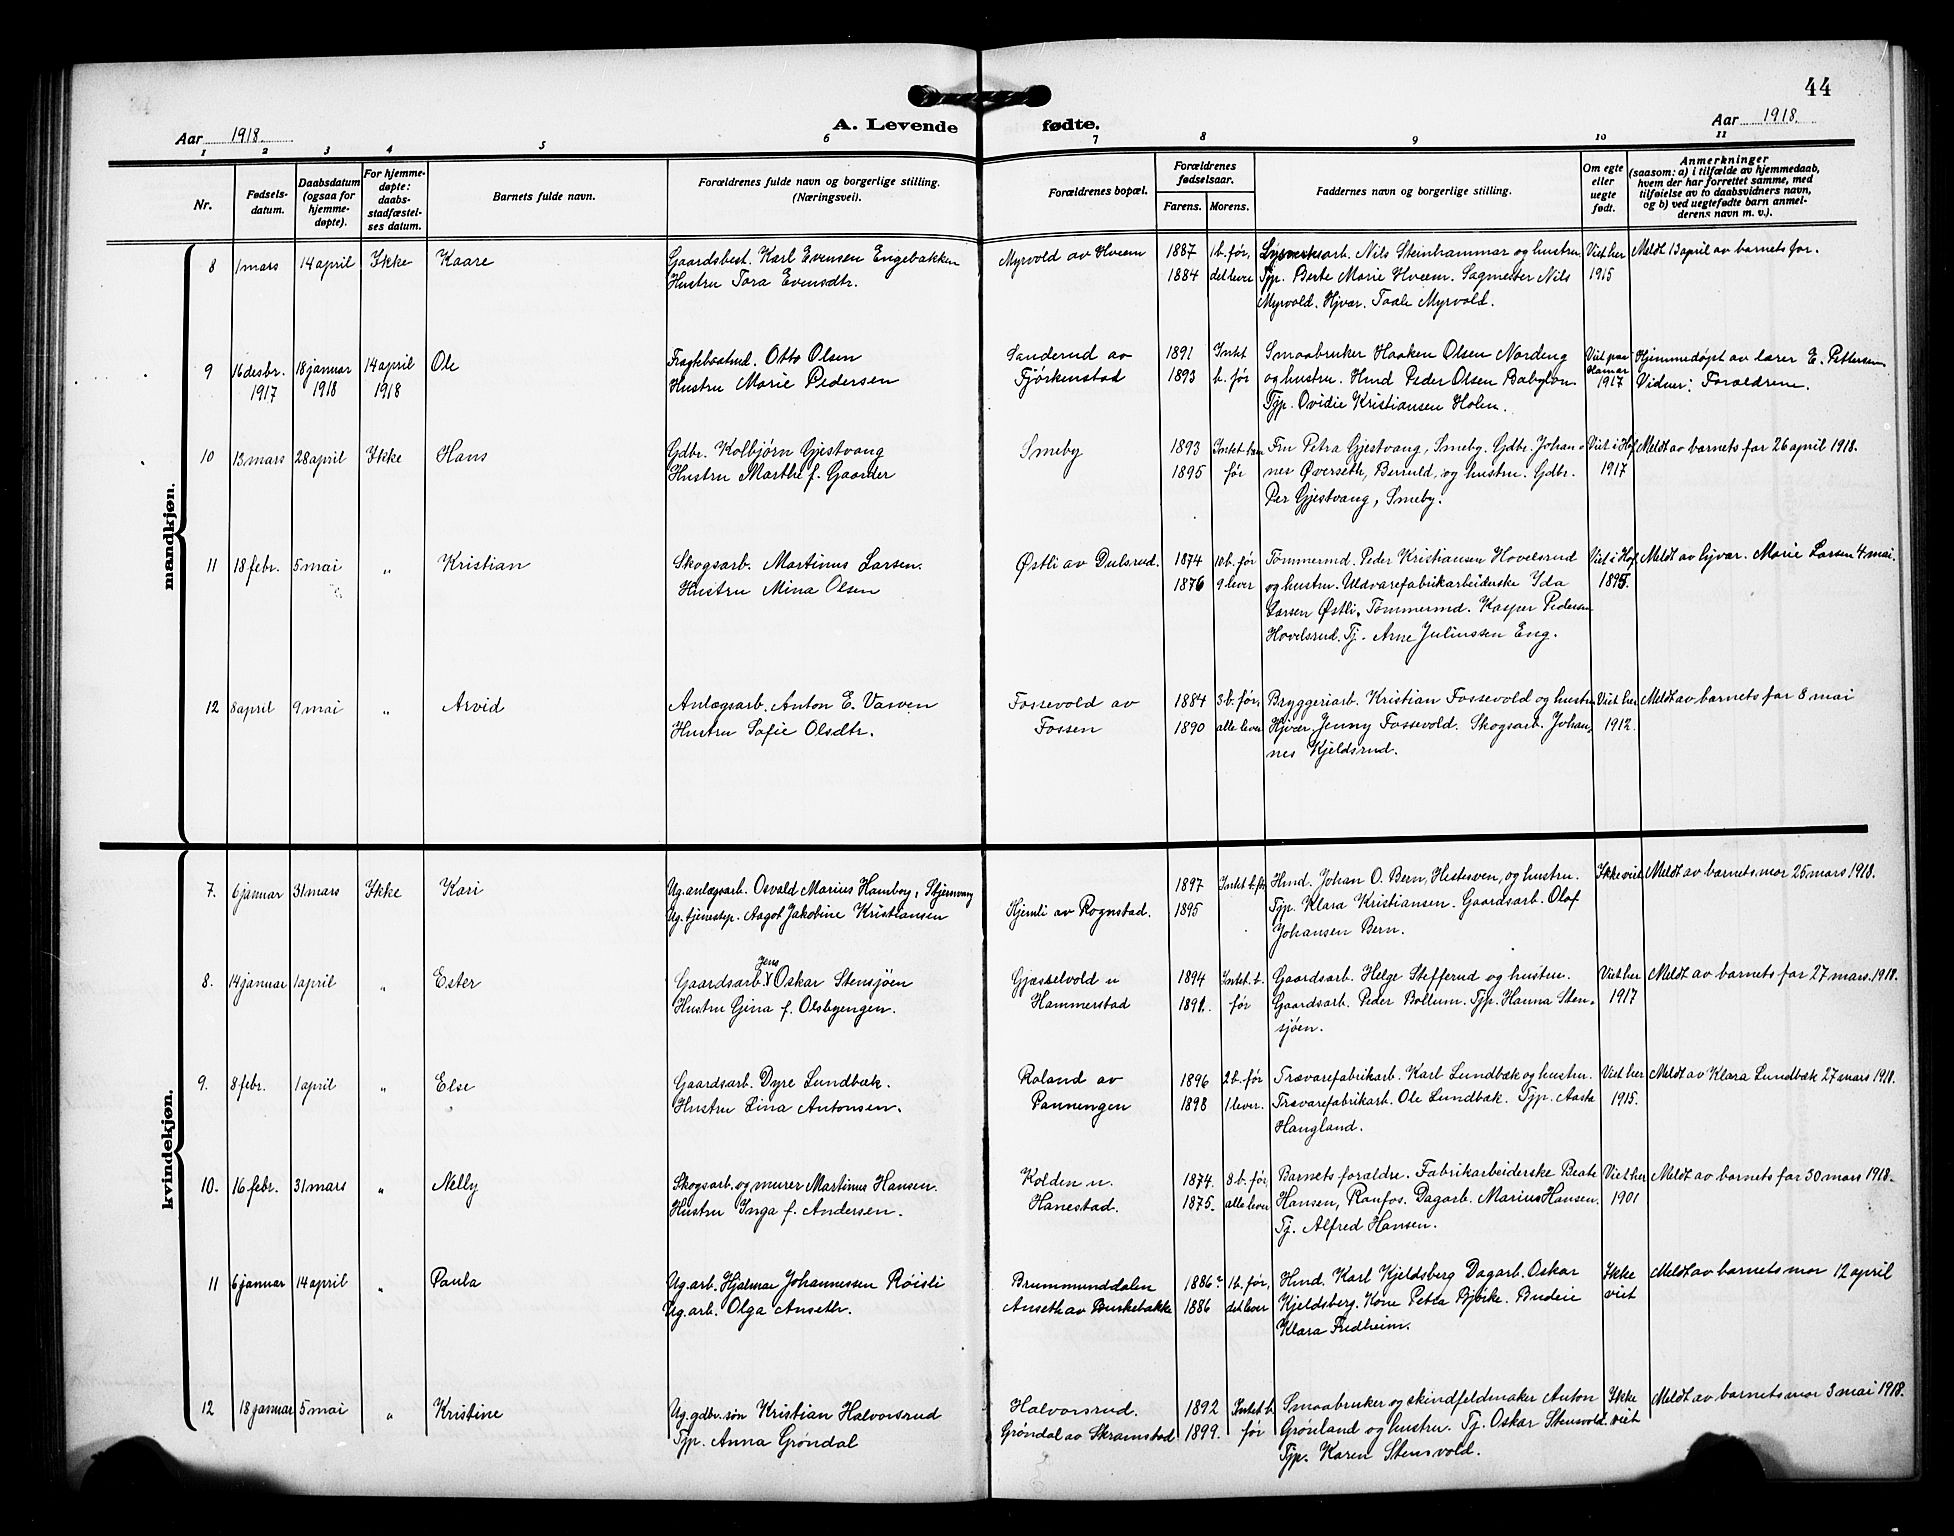 44
Aar 1918. A. Levende fødte. Aar 1918.
1 2 3 4 5 6 7 8 9 10 11
Nr.
Fødsels-
datum.
Daabsdatum
(ogsaa for
hjemme-
døpte).
For hjemme-
døpte:
daabs-
stadfæstel-
ses datum.
Barnets fulde navn.
Forældrenes fulde navn og borgerlige stilling.
(Næringsvei).
Forældrenes bopæl.
Forældrenes
fødselsaar.
Farens. Morens.
Faddernes navn og borgerlige stilling.
Om egte
eller
uegte
født.
Anmerkninger
(saasom: a) i tilfælde av hjemmedaab,
hvem der har forrettet samme, med
tilføielse av to daabsvidners navn,
og b) ved uegtefødte barn anmel-
derens navn m. v.).
mandkjøn.
8 1 mars 14 april Ikke Kaare
Gaardsbest. Karl Evensen Engebakken
Hustru Tora Evensdtr.
Myrvold av Hveem
1887 1 b. før,
1884 det lever
Lysverksarb. Nils Steinhammar og hustru
Tjp. Berte Marie Hveem. Sagmester Nils
Myrvold. Hjvar. Taale Myrvold.
Viet her
1915
Meldt 13 april av barnets far.
9 16 desbr. 18 januar 14 april Ole
1917 1918 1918
Fragtebaatmd. Otto Olsen
Hustru Marie Pedersen
Sanderud av
Fjørkenstad
1891 Intet
1893 b. før
Smaabruker Haaken Olsen Nordeng
og hustru. Hmd Peder Olsen Babylon.
Tjp. Ovidie Kristiansen Holen.
Viet paa
Hamar
1917
Hjemmedøpt av lærer E. Pettersen
Vidner: Forældrene.
10 13 mars 28 april Ikke Hans
Gdbr. Kolbjørn Gjestvang
Hustru Marthe f. Gaarder
Smeby
1893 Intet barn
1895 før
Fru Petra Gjestvang, Smeby. Gdbr. Johan-
nes Øverseth, Berruld, og hustru. Gdbr.
Per Gjestvang, Smeby.
Viet i Hof
1917
Meldt av barnets far 26 april 1918.
11 18 febr. 5 mai „ Kristian
Skogsarb. Martinus Larsen.
Hustru Mina Olsen
Østli av Dulsrud.
1874 10 b. før
1876 9 lever
Tømmermd. Peder Kristiansen Hovelsrud
og hustru. Uldvarefabrikarbeiderske Ida
Larsen Østli. Tømmermd. Kasper Pedersen
Hovelsrud. Tj. Arne Juliussen Eng.
Viet i Hof
1895.
Meldt av Marie Larsen 4 mai.
12 8 april 9 mai „ Arvid
Anlægsarb. Anton E. Vasven
Hustru Sofie Olsdtr.
Fossevold av
Fossen
1884 3 b. før,
1890 alle lever
Bryggeriarb. Kristian Fossevold og hustru
Hjvær. Jenny Fossevold. Skogsarb. Johan-
nes Kjeldsrud.
Viet her
1912.
Meldt av barnets far 8 mai
kvindekjøn.
7. 6 januar 31 mars Ikke Kari
Ug. anlægsarb. Osvald Marius Hamborg, Stjernvang
Ug. tjenestep. Aagot Jakobine Kristiansen
Hjemli av Rognstad.
1897 Intet b. før
1895
Hmd. Johan O. Bern, Hestesven, og hustru.
Tjp. Klara Kristiansen. Gaardsarb. Olaf
Johansen Bern.
Ikke viet
Meldt av barnets mor 25 mars 1918.
8. 14 januar 1 april „ Ester
Jens
Gaardsarb. Oskar Stensjøen
Hustru Gina f. Olsbyengen.
Gjæsselvold u
Hammerstad
1894 Intet b.
1891. før
Gaardsarb. Helge Stefferud og hustru.
Gaardsarb. Peder Bollum. Tjp. Hanna Sten-
sjöen.
Viet her
1917
Meldt av barnets far 27 mars. 1918.
9. 8 febr. 1 april „ Else
Gaardsarb. Dyre Lundbæk.
Hustru Lina Antonsen.
Roland av
Pannengen
1896 2 b. før
1898 1 lever.
Trævarefabrikarb. Karl Lundbæk og hustru.
Trævarefabrikarb. Ole Lundbæk. Tjp. Aasta
Haugland.
Viet her
1915.
Meldt av Klara Lundbæk 27 mars 1918.
10. 16 febr. 31 mars „ Nelly
Skogsarb. og murer Martinus Hansen.
Hustru Inga f. Andersen.
Kolden u.
Hanestad.
1874. 8 b. før,
1875. alle lever
Barnets forældre. Fabrikarbeiderske Beate
Hansen, Raufos. Dagarb. Marius Hansen.
Tj. Alfred Hansen.
Viet her
1901
Meldt av barnets far 30 mars 1918.
11 6 januar 14 april „ Paula
Ug. arb. Hjalmar Johannessen Røisli
Ug. arb. Olga Anseth.
Brummunddalen
Anseth av Birkebakke
1886? 1 b. før,
1886 det lever
Hmd. Karl Kjeldsberg Dagarb. Oskar
Kjeldsberg. Kone Petra Bjørke. Budeie
Klara Fredheim.
Ikke
viet
Meldt av barnets mor 12 april
12 18 januar 5 mai „ Kristine
Ug. gdbr. søn Kristian Halvorsrud
Tjp. Anna Grøndal
Halvorsrud.
Grøndal av Skramstad
1892 Intet b
1899. før
Smaabruker og skindfeldmaker Anton
Grønland og hustru. Tj. Oskar Stensvold.
Tjp. Karen Stensvold.
Ikke
viet
Meldt av barnets mor 3 mai 1918.